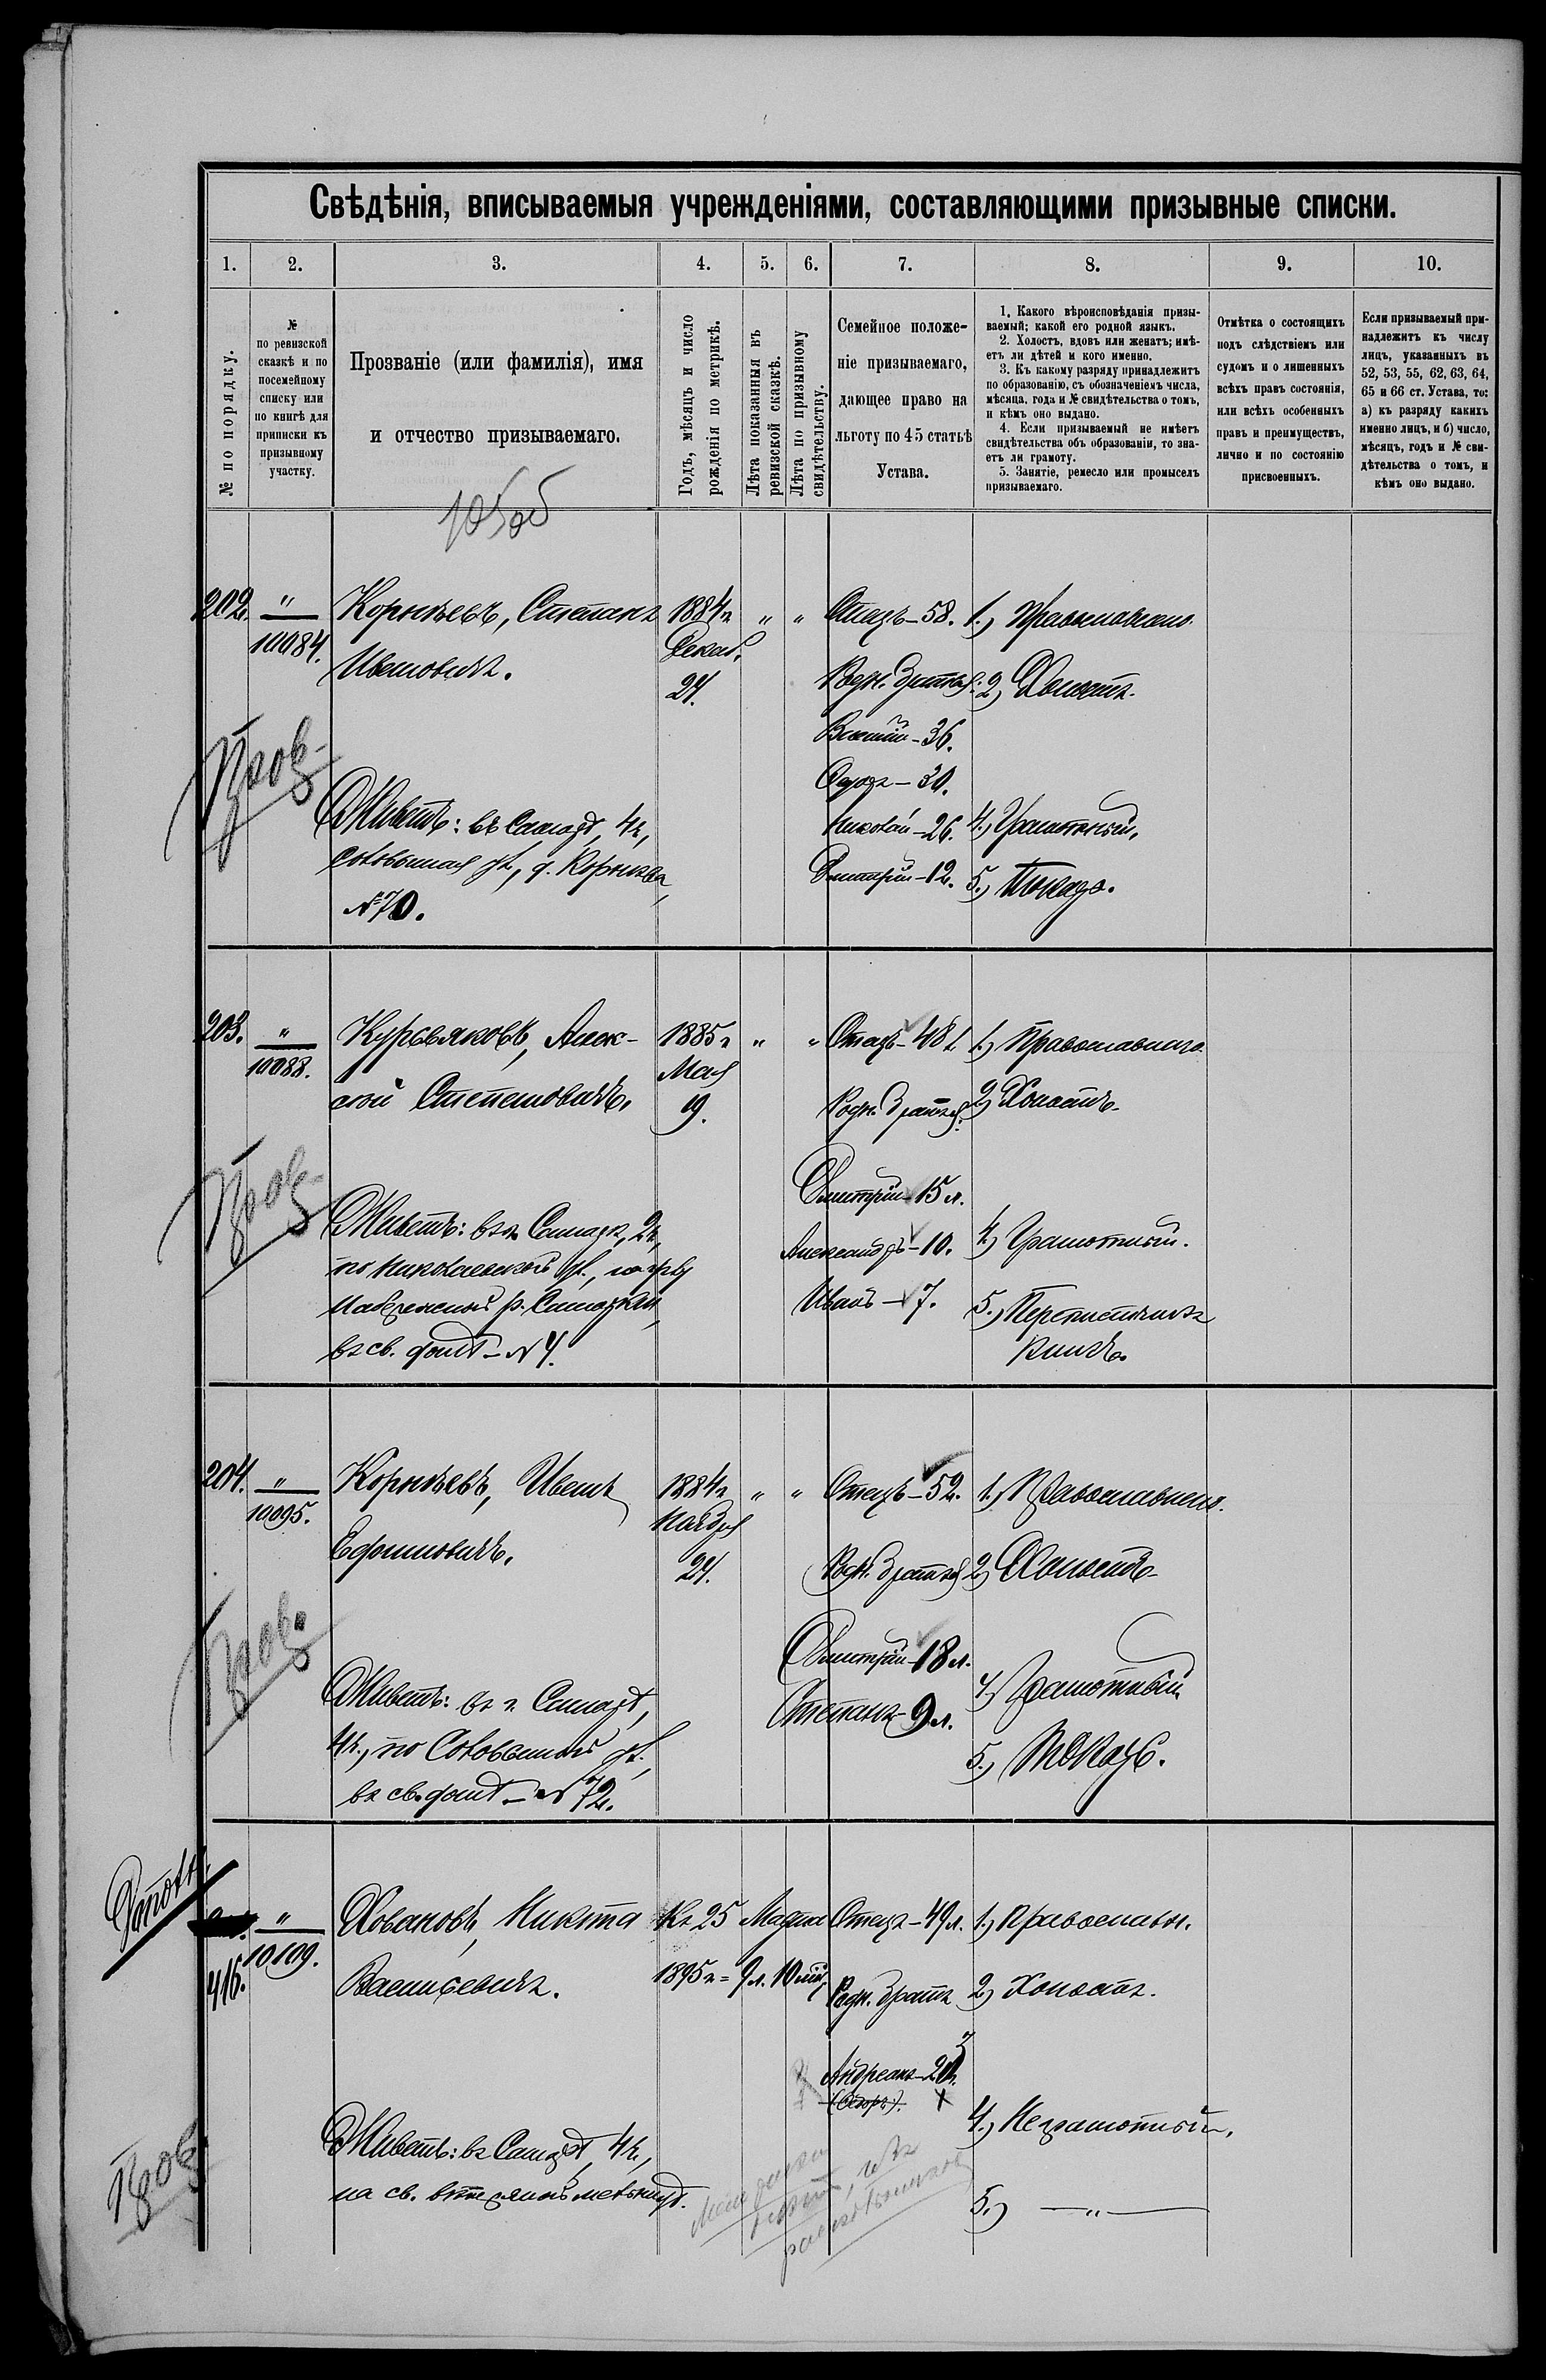 Свѣдѣнія, вписываемыя учрежденіями, составляющими призывные списки.
1. 2. 3. 4. 5. 6. 7. 8. 9. 10.
№ по порядку.
№
по ревизской
сказкѣ и по
посемейному
списку или
по книгѣ для
приписки къ
призывному
участку.
Прозваніе (или фамилія), имя
и отчество призываемаго.
Годъ, мѣсяцъ и число
рожденія по метрикѣ.
Лѣта показанныя въ
ревизской сказкѣ.
Лѣта по призывному
свидѣтельству.
Семейное положе-
ніе призываемаго,
дающее право на
льготу по 45 статьѣ
Устава.
1. Какого вѣроисповѣданія призы-
ваемый; какой его родной языкъ.
2. Холостъ, вдовъ или женатъ; имѣ-
етъ ли дѣтей и кого именно.
3. Къ какому разряду принадлежитъ
по образованію, съ обозначеніемъ числа,
мѣсяца, года и № свидѣтельства о томъ,
и кѣмъ оно выдано.
4. Если призываемый не имѣетъ
свидѣтельства объ образованіи, то зна-
етъ ли грамоту.
5. Занятіе, ремесло или промыселъ
призываемаго.
Отмѣтка о состоящихъ
подъ слѣдствіемъ или
судомъ и о лишенныхъ
всѣхъ правъ состоянія,
или всѣхъ особенныхъ
правъ и преимуществъ,
лично и по состоянію
присвоенныхъ.
Если призываемый при-
надлежитъ къ числу
лицъ, указанныхъ въ
52, 53, 55, 62, 63, 64,
65 и 66 ст. Устава, то:
а) къ разряду какихъ
именно лицъ, и б) число,
мѣсяцъ, годъ и № сви-
дѣтельства о томъ, и
кѣмъ оно выдано.
202. " 10084.
Корнѣевъ, Степанъ
Ивановичъ.
Живетъ: въ Самарѣ, 4ч,
д. Корнѣева,
№ 70.
1884г
Декаб.
24.
" "
Отецъ - 58.
Родн. братья:
- 36.
- 30.
Николай - 26.
Дмитрій - 12.
1.) Православнаго
2) Холостъ.
4.) Грамотный,
5.) Токарь.
203. " 10088.
Курсяковъ, Алек-
сѣй Степановичъ.
Живетъ: въ г. Самарѣ, 2ч,
по Николаевской ул.,
Набережной р. Самарки,
въ св. домѣ - № 4.
1885г
Мая
9.
" "
Отецъ - 48 л.
Родн. братья:
Дмитрій - 15 л.
Александръ - 10.
Иванъ - 7.
1.) Православнаго.
2) Холостъ.
4.) Грамотный.
5.) Переплетчикъ
книгъ.
204. " 10095.
Корнѣевъ, Иванъ
Ефимовичъ.
Живетъ: въ г. Самарѣ,
4ч., по
въ св. домѣ - № 72.
1884г
Ноября
24.
" "
Отецъ - 52.
Родн. братья
Дмитрій - 18 л.
Степанъ - 9 л.
1.) Православнаго.
2) Холостъ
4) Грамотный
5.) Токарь.
415. " 10109.
Ховановъ, Никита
Васильевичъ.
Живетъ: въ Самарѣ, 4ч,
на св. вѣтряной мельницѣ.
Къ 25 Марта
1895г = 9 л. 10 м.
Отецъ - 49 л.
Родн. братъ
Андреанъ - 20
1.) Православн.
2) Холостъ.
4.) Неграмотный.
5.) — " —